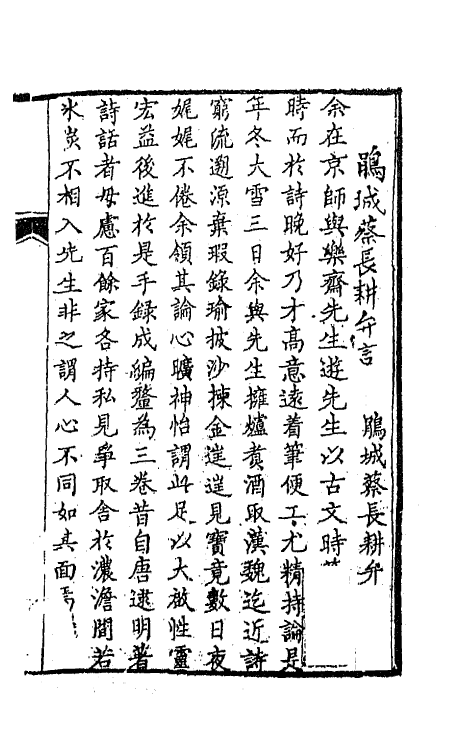 鵑城蔡長耕弁言　鵑城蔡長耕弁
余在京師與樂齋先生遊先生以古文時
時而於詩晚好乃才高意遠着筆便工尤精持論是
年冬大雪三日余與先生擁爐煑酒取漢魏迄近詩
窮流遡源棄瑕錄瑜披沙揀金逬逬見寶竟數日夜
娓娓不倦余領其論心曠神怡謂此足以大啟性靈
宏益後進於是手録成編釐為三卷昔自唐逮明著
詩話者毋慮百餘家各持私見爭取舍於濃澹間若
氷炭不相入先生非之謂人心不同如其面焉